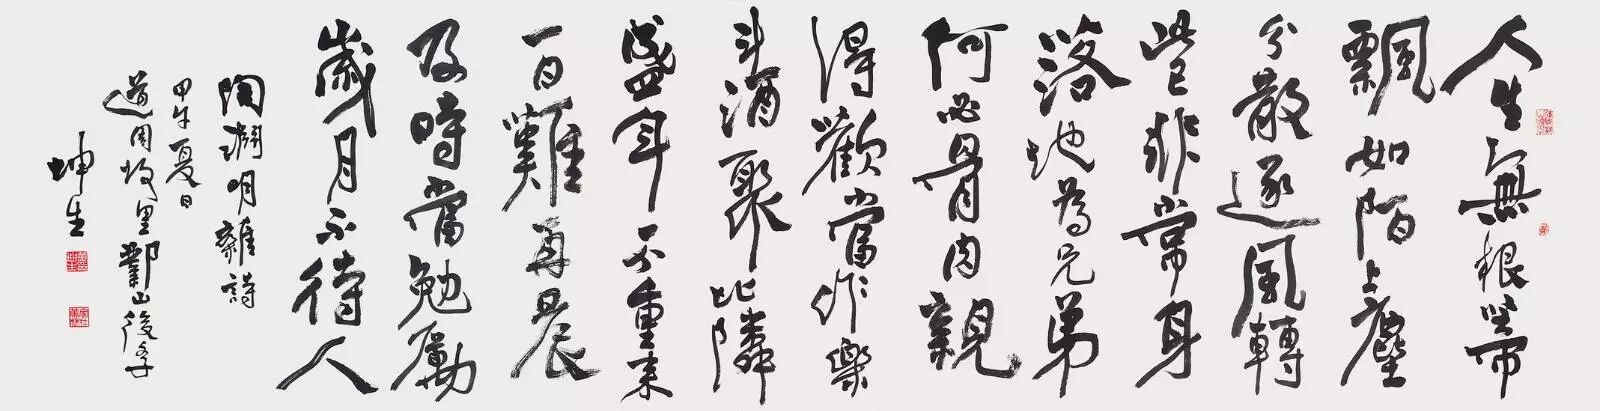 人生無根蒂
飄如陌上塵
分散逐風轉
此已非常身
落地為兄弟
何必骨肉親
得歡當作樂
斗酒聚比隣
盛年不重来
一日難再晨
及時當勉勵
歲月不待人
陶淵明雜詩
甲午夏日
道周故里鄴山後学
坤生